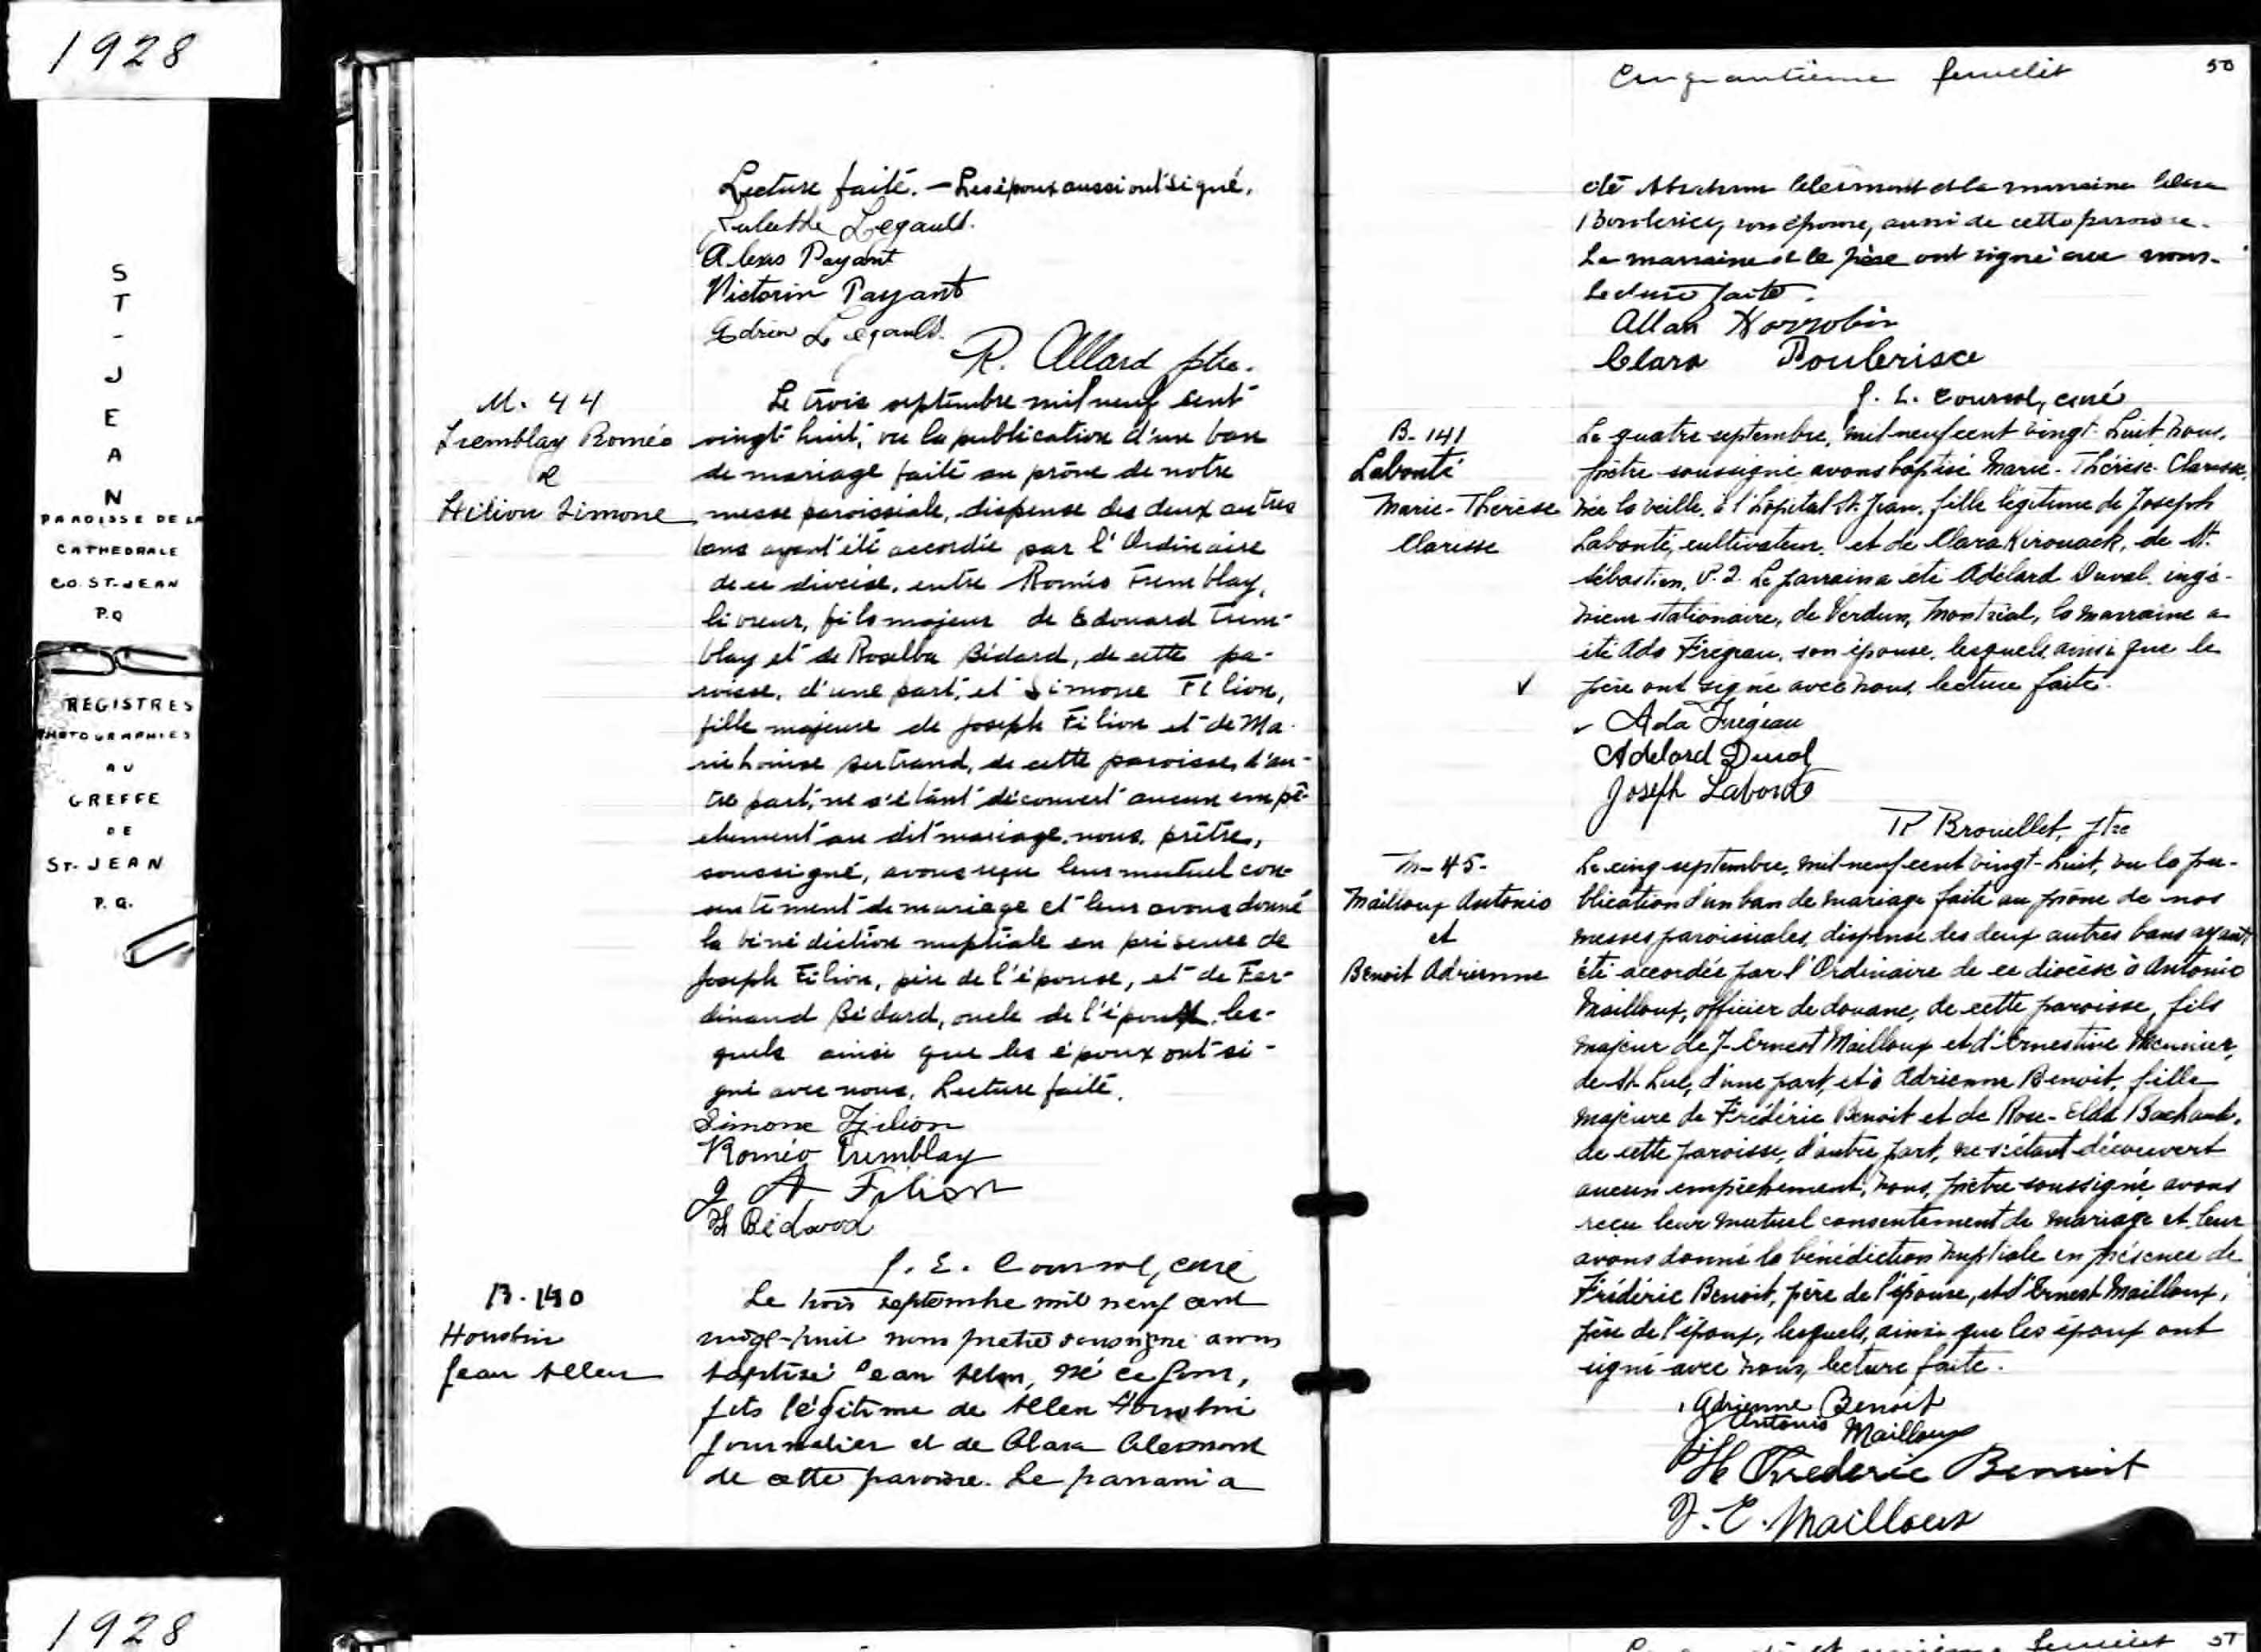 1928
S
T
-
J
E
A
N
PAROISSE DE LA
CATHEDRALE
CO. ST-JEAN
P.Q
REGISTRES
PHOTOGRAPHIES
AU
GREFFE
DE
ST-JEAN
P.Q.
1928
Lecture faite. — Les époux aussi ont signé.
Legault.
Alexis Payant
Victorin Payant
Adrien Legault.
R. Allard ptre.
M. 44
Tremblay Roméo
&
Filion Simone
Le trois septembre mil neuf cent
vingt huit, vu la publication d'un ban
de mariage faite au prône de notre
messe paroissiale, dispense des deux autres
bans ayant été accordée par l'Ordinaire
de ce diocèse, entre Roméo Tremblay,
livreur, fils majeur de Edouard Trem-
blay et de Rosalba Bédard, de cette pa-
roisse, d'une part, et Simone Filion,
fille majeure de Joseph Filion et de Ma-
rie Louise Bertrand, de cette paroisse, d'au-
tre part, ne s'étant découvert aucun empê-
chement au dit mariage, nous, prêtre,
soussigné, avons reçu leur mutuel con-
sentement de mariage et leur avons donné
la bénédiction nuptiale en présence de
Joseph Filion, père de l'épouse, et de Fer-
dinand Bédard, oncle de l'époux, les-
quels ainsi que les époux ont si-
gné avec nous. Lecture faite.
Simone Filion
Roméo Tremblay
J. A. Filion
F Bédard
J. E. Coursol, curé
B. 140
Horrobin
Jean Allen
Le trois septembre mil neuf cent
vingt-huit nous prêtre soussigné avons
baptisé Jean Allen, né ce jour,
fils légitime de Allen Horrobin
journalier et de Clara Clermont
de cette paroisse. Le parrain a
Cinquantième feuillet 50
été Abraham Clermont et la marraine Clara
Boulerice, son épouse, aussi de cette paroisse.
La marraine et le père ont signé avec nous.
Lecture faite.
Allan Horrobin
Clara Boulerisce
J. E. Coursol, curé
B- 141
Labonté
Marie-Thérèse
Clarisse
Le quatre septembre, mil-neuf cent vingt-huit, nous,
prêtre soussigné avons baptisé Marie-Thérèse Clarisse,
née la veille, à l'hôpital St. Jean, fille légitime de Joseph
Labonté, cultivateur, et de Clara Kirouack, de St.
Sébastien, P.Q. Le parrain a été Adélard Duval, ingé-
nieur stationaire, de Verdun, Montréal, la marraine a
été Ada Frégeau, son épouse, lesquels ainsi que le
père ont signé avec nous, lecture faite.
Ada Frégeau
Adelard Duval
Joseph Labonté
R Brouillet, ptre
M- 45-
Mailloux Antonio
et
Benoit Adrienne
Le cinq septembre, mil-neuf cent vingt-huit, vu la pu-
blication d'un ban de mariage faite au prône de nos
messes paroissiales, dispense des deux autres bans ayant
été accordée par l'Ordinaire de ce diocèse à Antonio
Mailloux, officier de douane, de cette paroisse, fils
majeur de J-Ernest Mailloux et d'Ernestine Meunier,
de St. Luc, d'une part, et à Adrienne Benoit, fille
majeure de Frédéric Benoit et de Rose-Elda Bachand,
de cette paroisse, d'autre part, ne s'étant découvert
aucun empêchement, nous, prêtre soussigné avons
reçu leur mutuel consentement de mariage et leur
avons donné la bénédiction nuptiale en présence de
Frédéric Benoit, père de l'épouse, et d'Ernest Mailloux,
père de l'époux, lesquels, ainsi que les époux ont
signé avec nous, lecture faite.
Adrienne Benoit
Antonio Mailloux
Frederic Benoit
J. E. Mailloux
feuillet 51